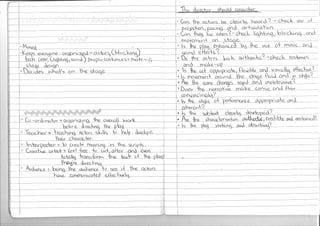 - Mixed
- Keeps everyone organised - actors (blocking)
tech crew (lighting, sound)
stage design
- Decides what's on the stage
- Co-ordinator = organising the overall work
before directing the play
- Teacher = teaching actors skills to help develop
their character
- Interpreter = to create meaning in the scripts
- Creative artist = feel free to cut, alter and even
totally transform the text of the play
they're directing
- Audience = being the audience to see if the actors
have communicated effectively
The director should consider:
• Can the actors be clearly heard? - check use of
projection, pacing, and articulation
• Can they be seen? - check lighting, blocking and
movement on stage
• Is the play enhanced by the use of music and
sound effects?
• Do the actors look authentic? - check costumes
and make-up
• Is the set appropriate, flexible and visually effective?
• Is movement around the stage fluid and in style?
• Are the scene changes rapid and unobtrusive?
• Does the narrative make sense and flow
convincingly?
• Is the style of performance appropriate and
coherent?
• Is the subtext clearly developed?
• Are the characterisations authentic, credible and emotional?
• Is the play exciting and absorbing?